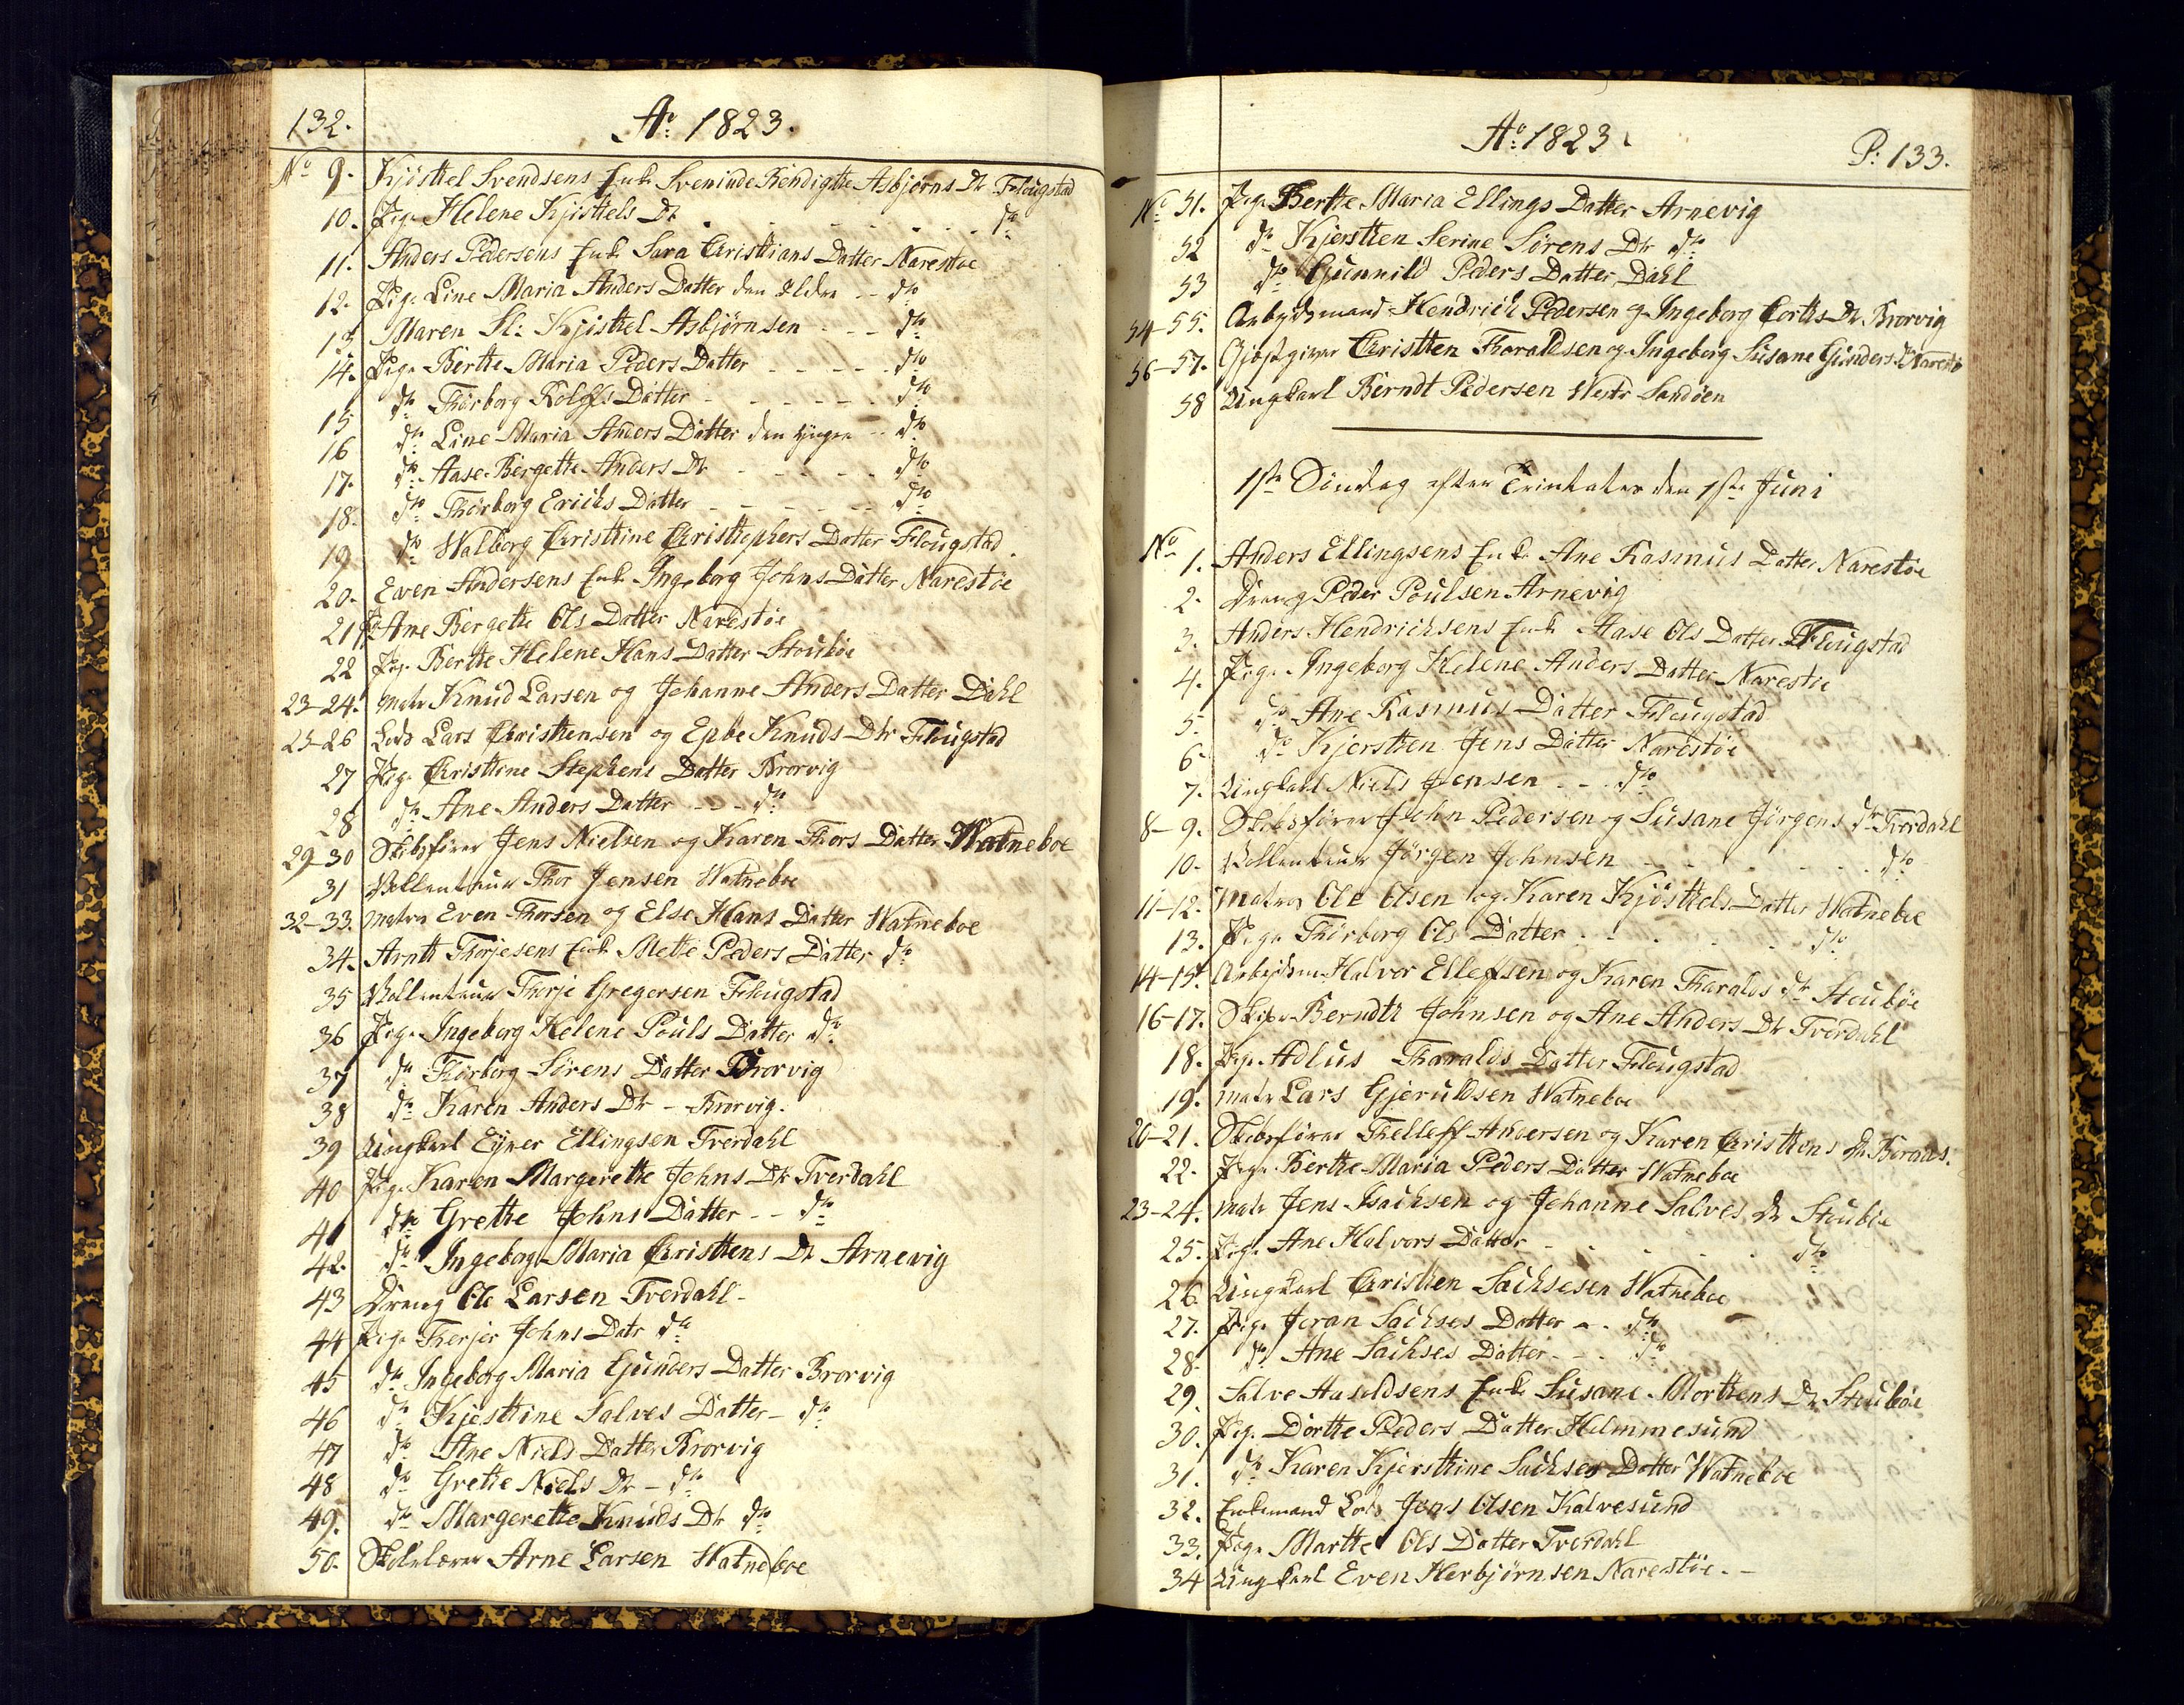 132.
Ao: 1823.
No 9. Kjisttel Svendsens Enke Sveninde Bendigtte Asbjørns Dr Flougstad
10. Pige Helene Kjisttels Dr - - - - do
11. Anders Pedersens Enke Sara Christians Datter Narestøe
12. Pige Line Maria Anders Datter den Eldre - - do
13 Maren Sl: Kjisttel Asbjørnsen - - - do
14. Pige Berthe Maria Peders Datter - - - - - do
15 do Thorborg Rolffs Datter - - - - - - do
16 do Line Maria Anders Datter den yngre - - do
17. do Aase Bergethe Anders Dr - - - - - do
18. do Thorborg Erichs Datter - - - - - - do
19 do Walborg Christtine Christtophers Datter Flougstad.
20. Even Andersens Enke Ingeborg Johns Datter Narestøe
21 Pig Ane Bergette Ols Datter Narestøe
22 Pige Berthe Helene Hans Datter Stoubøe
23-24. Matr Knud Larsen og Johanne Anders Datter Dahl
25-26 Lods Lars Christtensen og Epbe Knuds Dtr Flougstad
27 Pige Christtine Stephens Datter Brorvig
28 do Ane Anders Datter - - - do
29-30 Skibsfører Jens Nielsen og Karen Thors Datter Watneboe
31 Vollenteur Thor Jensen Watneboe
32-33. Matros Even Thorsen og Else Hans Datter Watneboe
34. Arntt Thorjesens Enke Mette Peders Datter do
35 Vollenteur Thorje Gregersen Flougstad
36 Pige Ingeborg Helene Pouls Datter do
37 do Thorborg Sørens Datter Brorvig
38 do Karen Anders Dtr - Brorvig.
39 Ungkarl Ejner Ellingsen Tverdahl
40 Pige Karen Margrethe Johns Dtr Tverdahl
41 do Grethe Johns Datter - - do
42. do Ingeborg Maria Christtens Dr Arnevig
43 Dreng Ole Larsen Tverdahl -
44 Pige Therjer Johns Datr do
45 do Ingeborg Maria Gunders Datter Brorvig
46 do Kjesttine Salves Datter - do
47 do Ane Niels Datter Brorvig
48 do Grette Niels Dr - do
49. do Margerette Knuds Dtr do
50. Skolelærer Arne Larsen Watneboe
Ao: 1823.
P: 133.
No 51. Pige Berthe Maria Ellings Datter Arnevig
52 do Kjerstten Serine Sørens Dtr do
53 do Gunnild Peders Datter Dahl
54-55. Arbejdsmand Hendrich Pedersen og Ingeborg Dr Brorvig
56-57. Christten Tharaldsen og Ingeborg Susane Gunders Dr
58 Ungkarl Berndt Pedersen Westr Sandøen
1ste Søndag efter Trinitates den 1ste Juni
No 1. Anders Ellingsens Enke Ane Rasmus Datter Narestøe
2. Dreng Peder Poulsen Arnevig
3. Anders Hendrichsens Enke Aase Ols Datter Flougstad
4. Pige Ingeborg Helene Anders Datter Narestøe
5. do Ane Rasmus Datter Flougstad
6. do Kjerstten Jens Datter Narestøe
7. Ungkarl Niels Jensen - - do
8-9. Skibsfører John Pedersen og Susane Jørgens dr Tverdahl
10. Vollenteur Jørgen Johnsen - - - - do
11-12. Matros Ole Olsen og Karen Kjøsttels Datter Watneboe
13. Pige Thorborg Ols Datter - - - - do
14-15. Arbejdsm Halvor Ellefsen og Karen Tharalds dr Stoubøe
16-17. Skiper Berndtt Johnsen og Ane Anders Dtr Tverdahl
18. Pige Adlus Tharalds Datter Flougstad
19. Matr Lars Gjeruldsen Watneboe
20-21. Skibsfører Thelleff Andersen og Karen Christtens Dr Boraas.
22. Pige Berthe Maria Peders Datter Watneboe
23-24. Matr Jens Isachsen og Johanne Salves Dr Stoubøe
25. Pige Ane Halvors Datter - - - - do
26. Ungkarl Christten Sachsesen Watneboe
27. Pige Joran Sachses Datter - - do
28. do Ane Sachses Datter - - - do
29. Salve Aasoldsens Enke Susane Morttens Dr Stoubøe
30. Pige Dorthe Peders Datter Helmmesund
31. do Karen Kjersttine Sachses Datter Watneboe
32. Enkemand Lods Jens Olsen Kalvesund
33. Pige Marthe Ols Datter Tverdahl
34 Ungkarl Even Herbjørnsen Narestøe. -